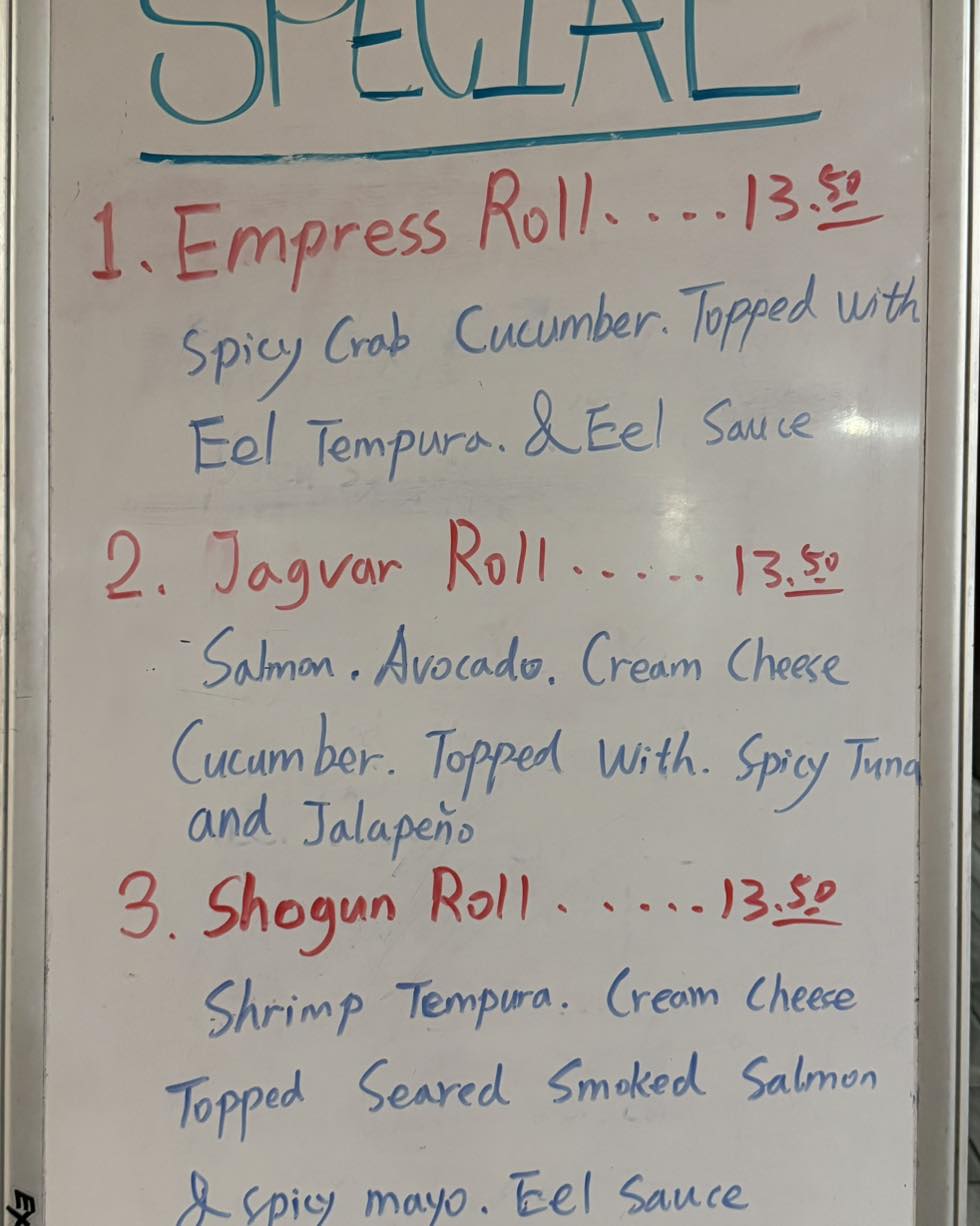 SPECIAL
1. Empress Roll.....13.50
Spicy Crab Cucumber. Topped with
Eel Tempura. & Eel Sauce
2. Jaguar Roll ..... 13.50
Salmon. Avocado. Cream Cheese
Cucumber. Topped With. Spicy Tuna
and Jalapeño
3. Shogun Roll ......13.50
Shrimp Tempura. Cream Cheese
Topped Seared Smoked Salmon
& Spicy mayo. Eel Sauce
EX